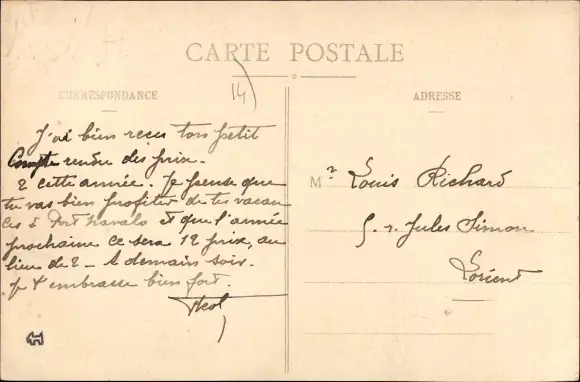 CARTE POSTALE
CORRESPONDANCE
14)
J'ai bien reçu ton petit
Compte rendu des prix.
2 cette année. Je pense que
tu vas bien profiter de tes vacan
ces à Port Navalo et que l'année
prochaine ce sera 12 prix, au
lieu de 2 - A demain soir.
Je t'embrasse bien fort.
ADRESSE
Mr Louis Richard
5. r. Jules Simon
Lorient